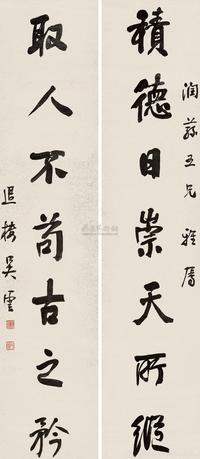 積德日崇天所縱
潤蓀五兄雅屬
取人不苟古之矜
退楼吳雲